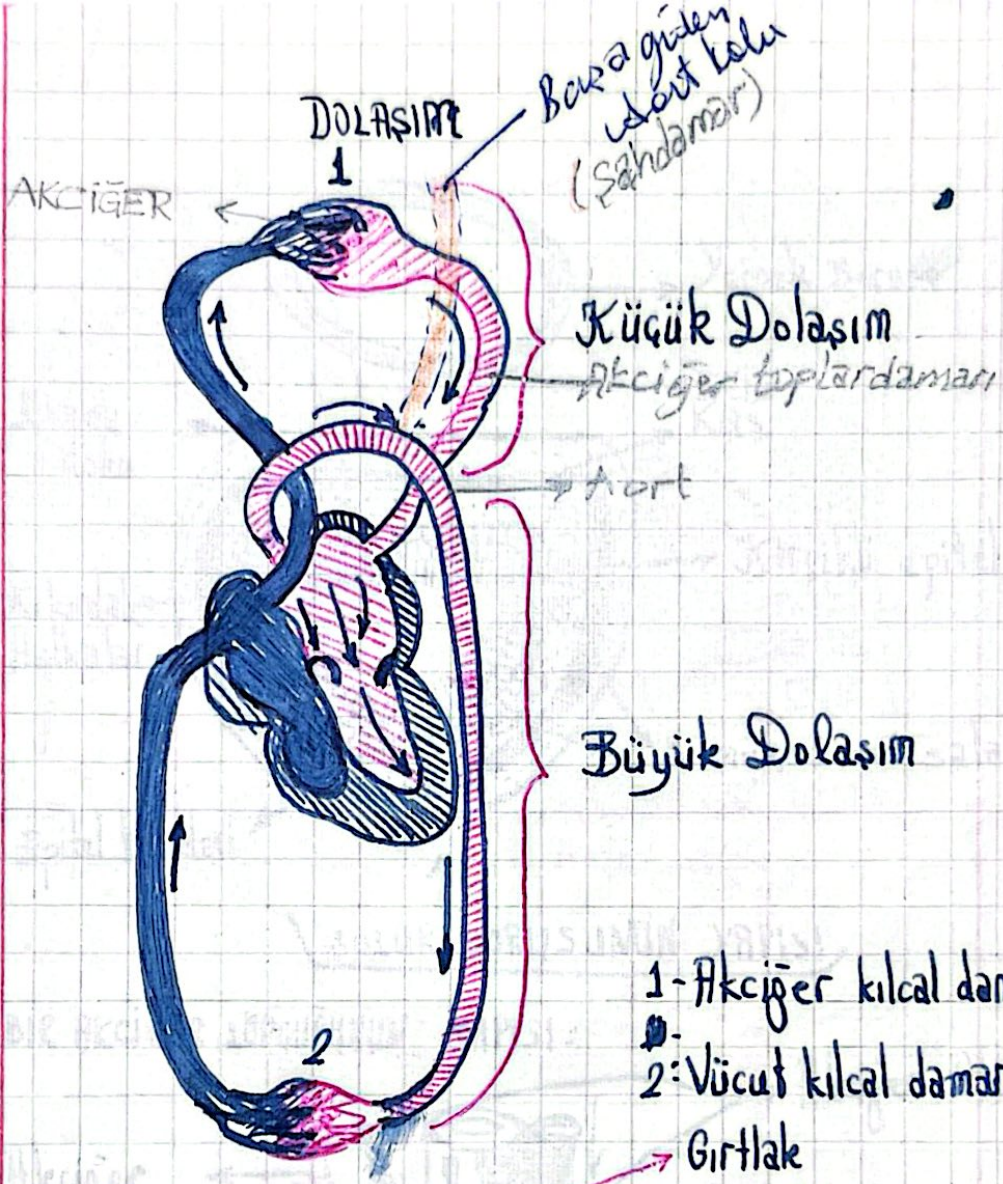 DOLAŞIM
1
Başa giden
Aort kolu
(Şahdamar)
AKCİĞER
Küçük Dolaşım
Akciğer toplardamarı
Aort
Büyük Dolaşım
1-Akciğer kılcal dar
2:Vücut kılcal damar
2
Gırtlak